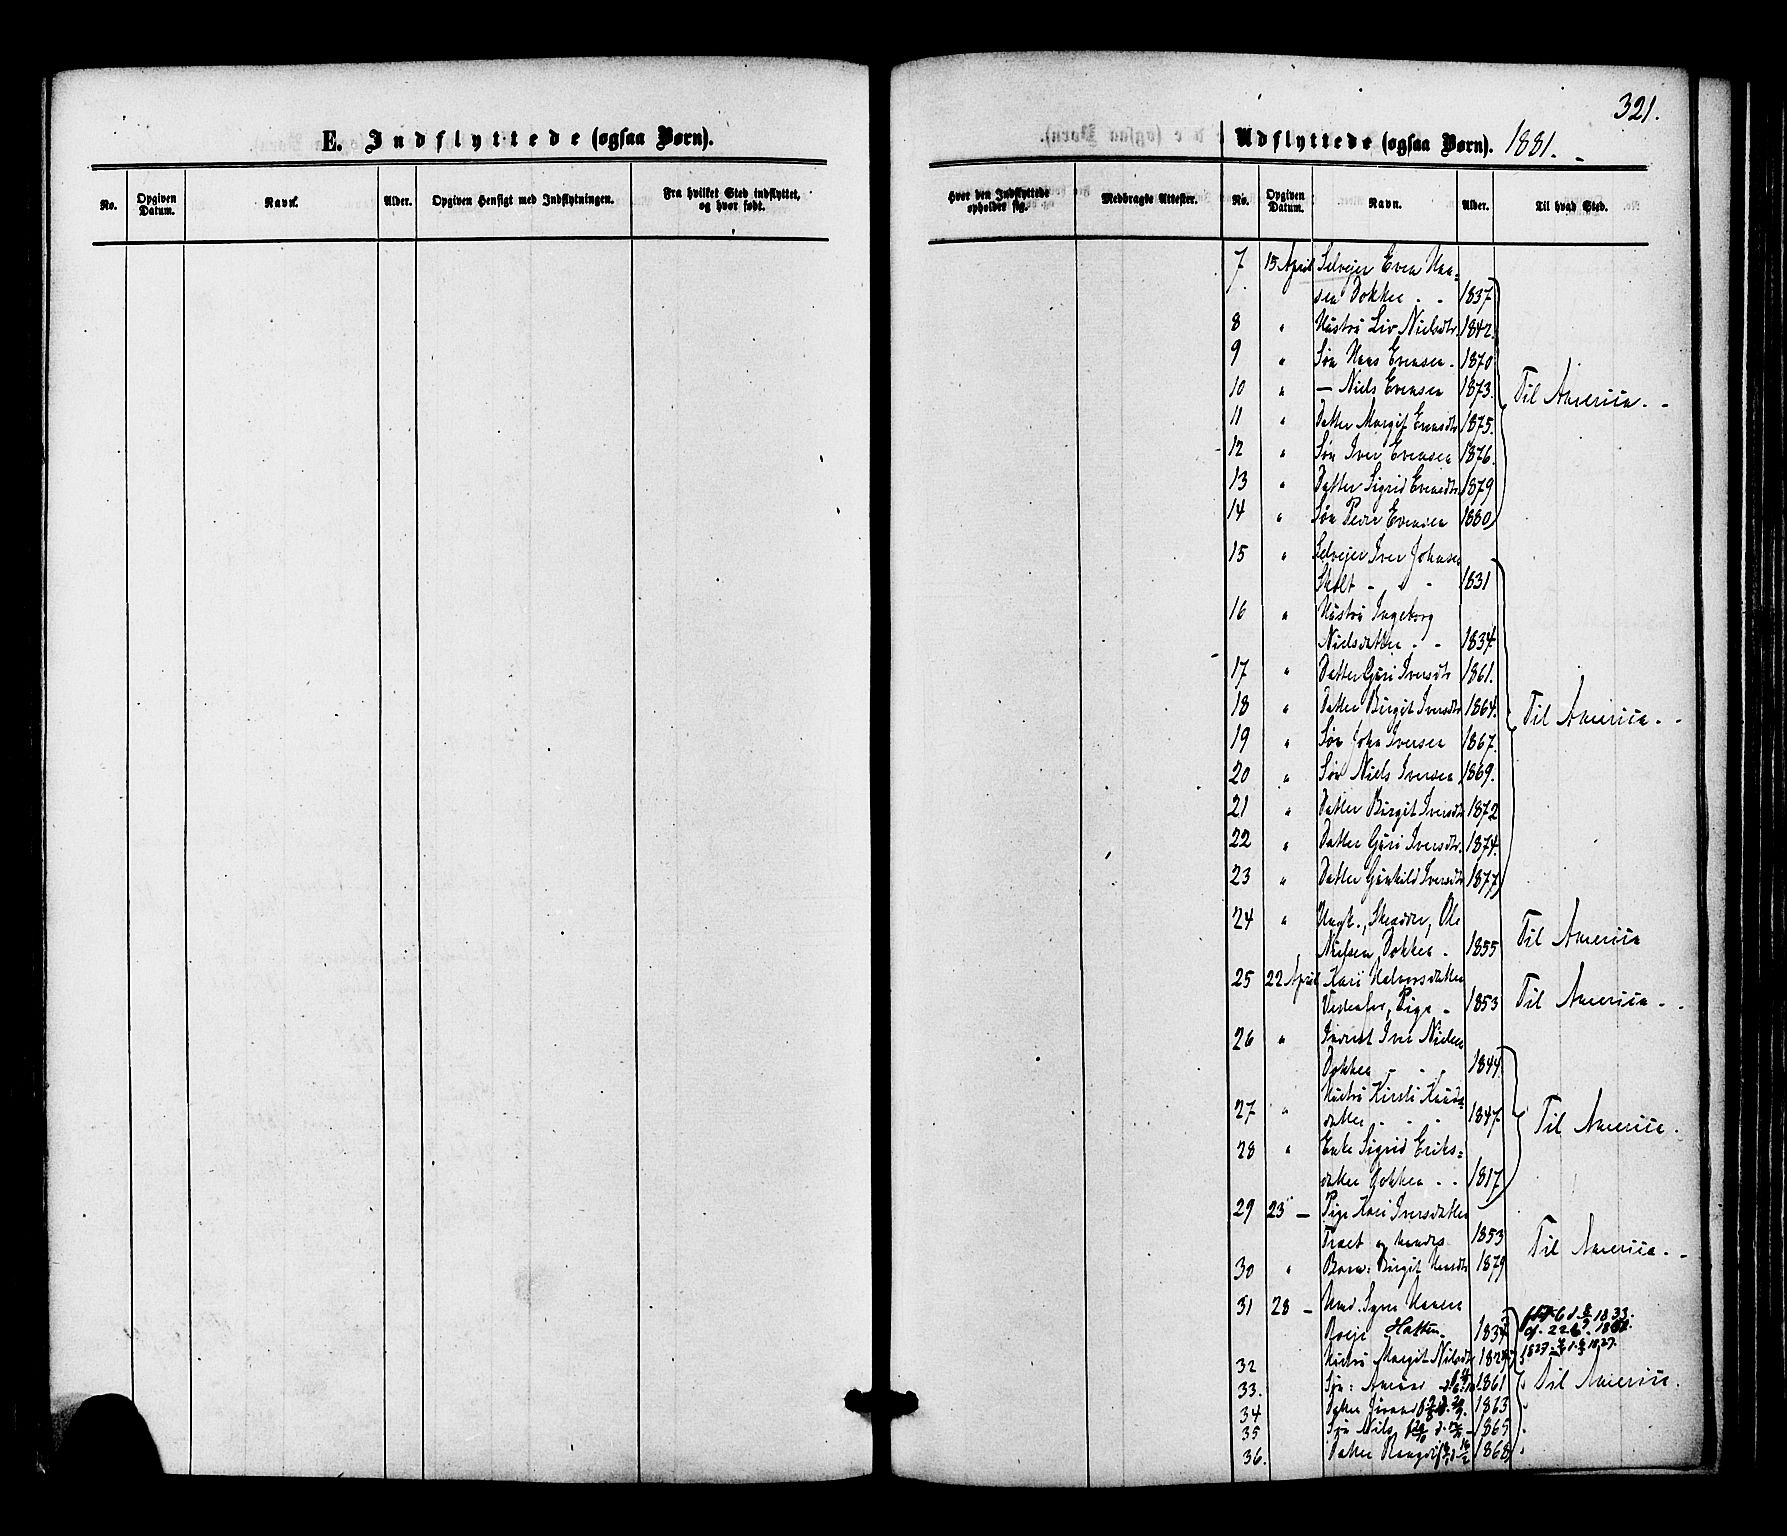 321.
E. Indflyttede (ogsaa Børn).
No. Opgiven Datum. Navn. Alder. Opgiven Hensigt med Indflytningen. Fra hvilket Sted indflyttet, og hvor født.
Udflyttede (ogsaa Børn). 1881.
Hvor den Indflyttede opholder sig. Medbragte Attester. No. Opgiven Datum. Navn. Alder. Til hvad Sted.
7 15 April Selveier Even Han-
sen Dokken - - 1837
8 " Hustru Liv Nielsdtr. 1842.
9 " Søn Hans Evensen - 1870
10 " — Niels Evensen 1873. Til America. -
11 " Datter Margit Evensdtr 1875.
12 " Søn Iver Evensen 1876.
13 " Datter Sigrid Evensdtr 1879
14 " Søn Peder Evensen 1880
15 " Selveier Iver Johnsen
Skolt - - - 1831
16 " Hustru Ingeborg
Nielsdatter - - 1834
17 " Datter Guri Iversdtr 1861.
18 " Datter Birgit Iversdtr 1864. Til America. -
19 " Søn John Iversen 1867.
20 " Søn Niels Iversen 1869.
21 " Datter Birgit Iversdtr 1872
22 " Datter Guri Iversdtr. 1874.
23 " Datter Gunhild Iversdtr 1877
24 " Ungk., Skrædder, Ole
Nielsen Dokken - 1855 Til America
25 22 April Kari Halvorsdatter
Pige - 1853 Til America - -
26 " Inderst Iver Nielsen
Dokken - - - 1844
27 " Hustru Kirsti Knuds-
datter - - - 1847 Til America.
28 " Enke Sigrid Eriks-
datter Dokken - - 1817
29 23 — Pige Kari Iversdatter
1853 Til America. -
30 " Barn: Birgit Hansdtr 1879
31 28 —
Hatten. 1834
32 Hustru Margit Nilsdtr
33. Søn: Amund 1861 Til America.
34 Datter 1863
35 Søn Nils 1865
36. Datter 1868